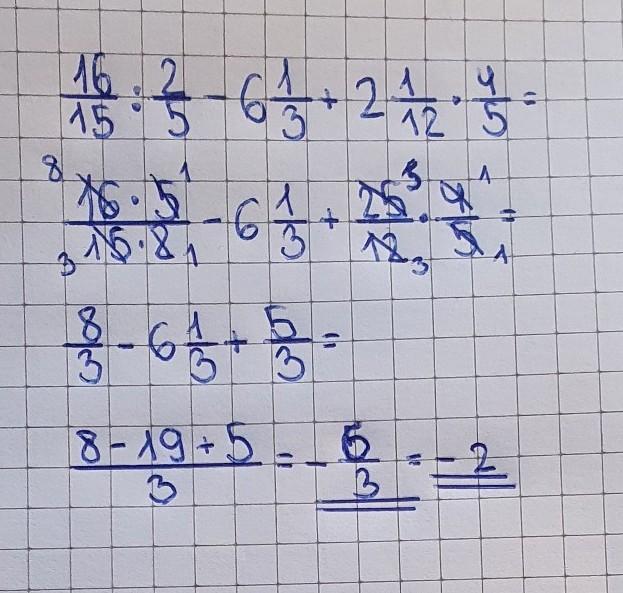 16/15 : 2/5 - 6 1/3 + 2 1/12 · 4/5 =
8 16 · 5 1 / 3 15 · 2 1 - 6 1/3 + 25 5 / 12 3 · 4 1 / 5 1 =
8/3 - 6 1/3 + 5/3 =
8 - 19 + 5 / 3 = - 6/3 = - 2